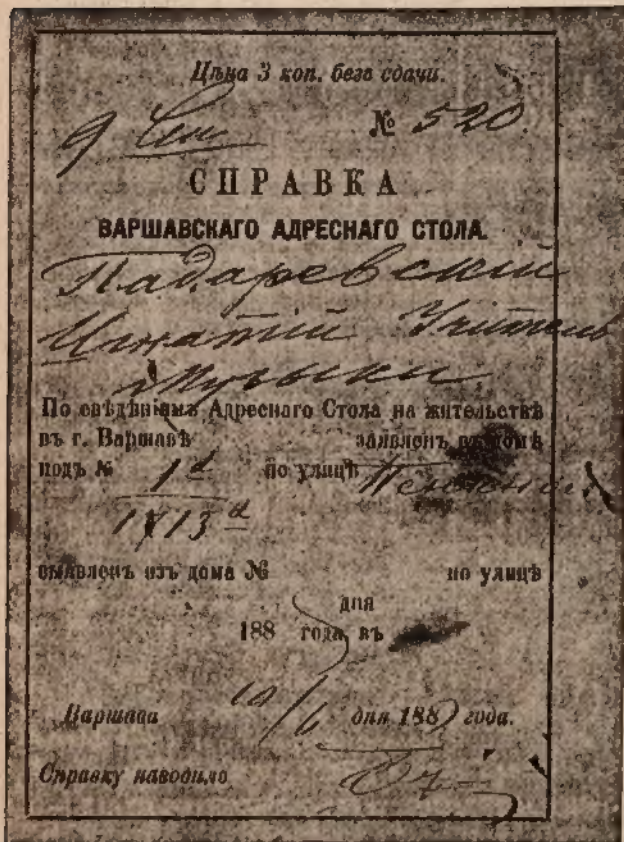 Цѣна 3 коп. безъ сдачи.
9 № 520
СПРАВКА
ВАРШАВСКАГО АДРЕСНАГО СТОЛА.
Падаревскій
Игнатій Учитель
Музыки
По свѣдѣніямъ Адреснаго Стола на жительствѣ
въ г. Варшавѣ заявленъ въ домѣ
подъ № 1 по улицѣ
выявленъ изъ дома № по улицѣ
дня
188 года въ
Варшава 10/6 дня 188 года.
Справку наводило